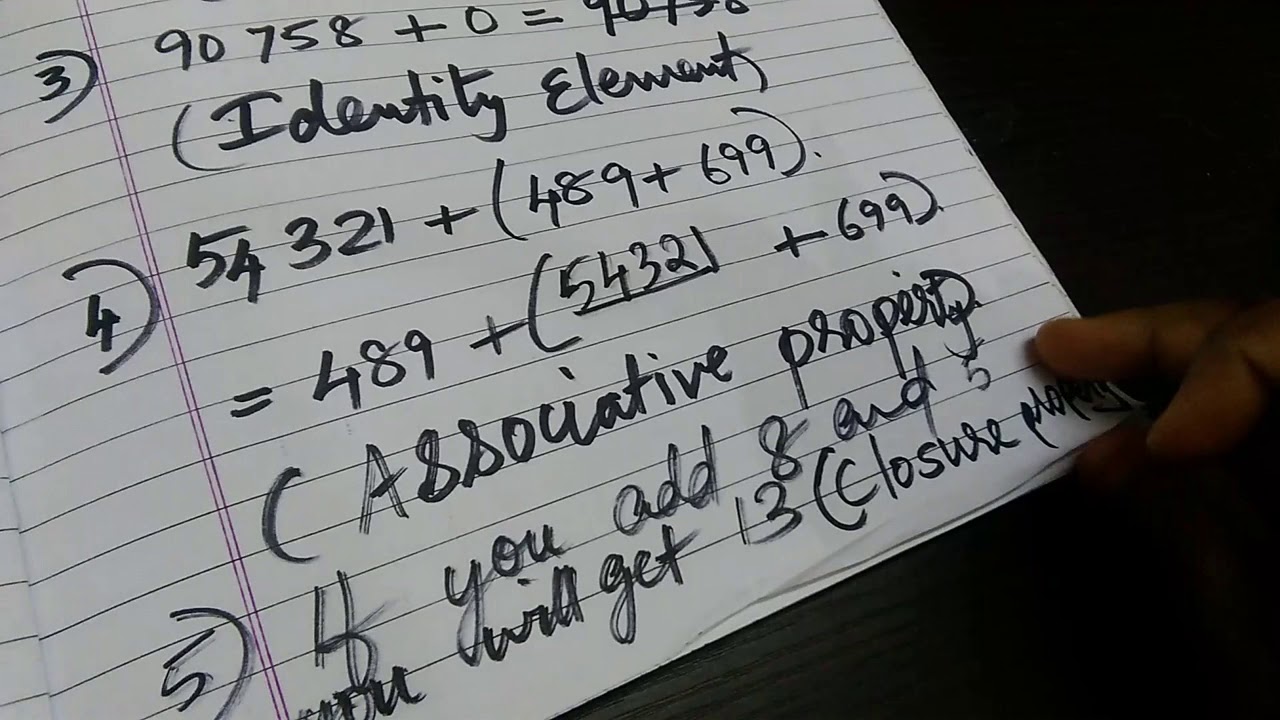 3) 90758 + 0 = 90758
(Identity Element)
4) 54321 + (489 + 699).
= 489 + (54321 + 699)
(Associative property
5) If you add 8 and 5
you will get 13 (Closure property